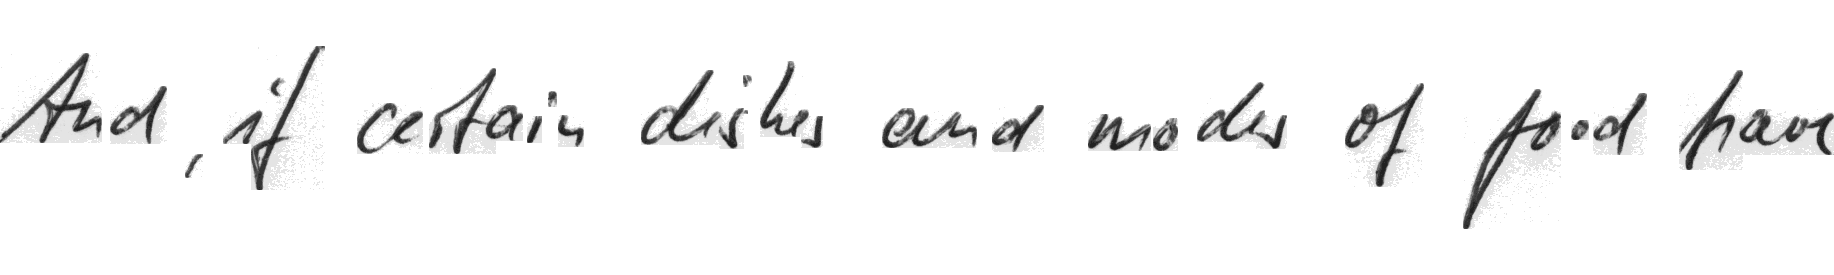 And, if certain dishes and modes of food have